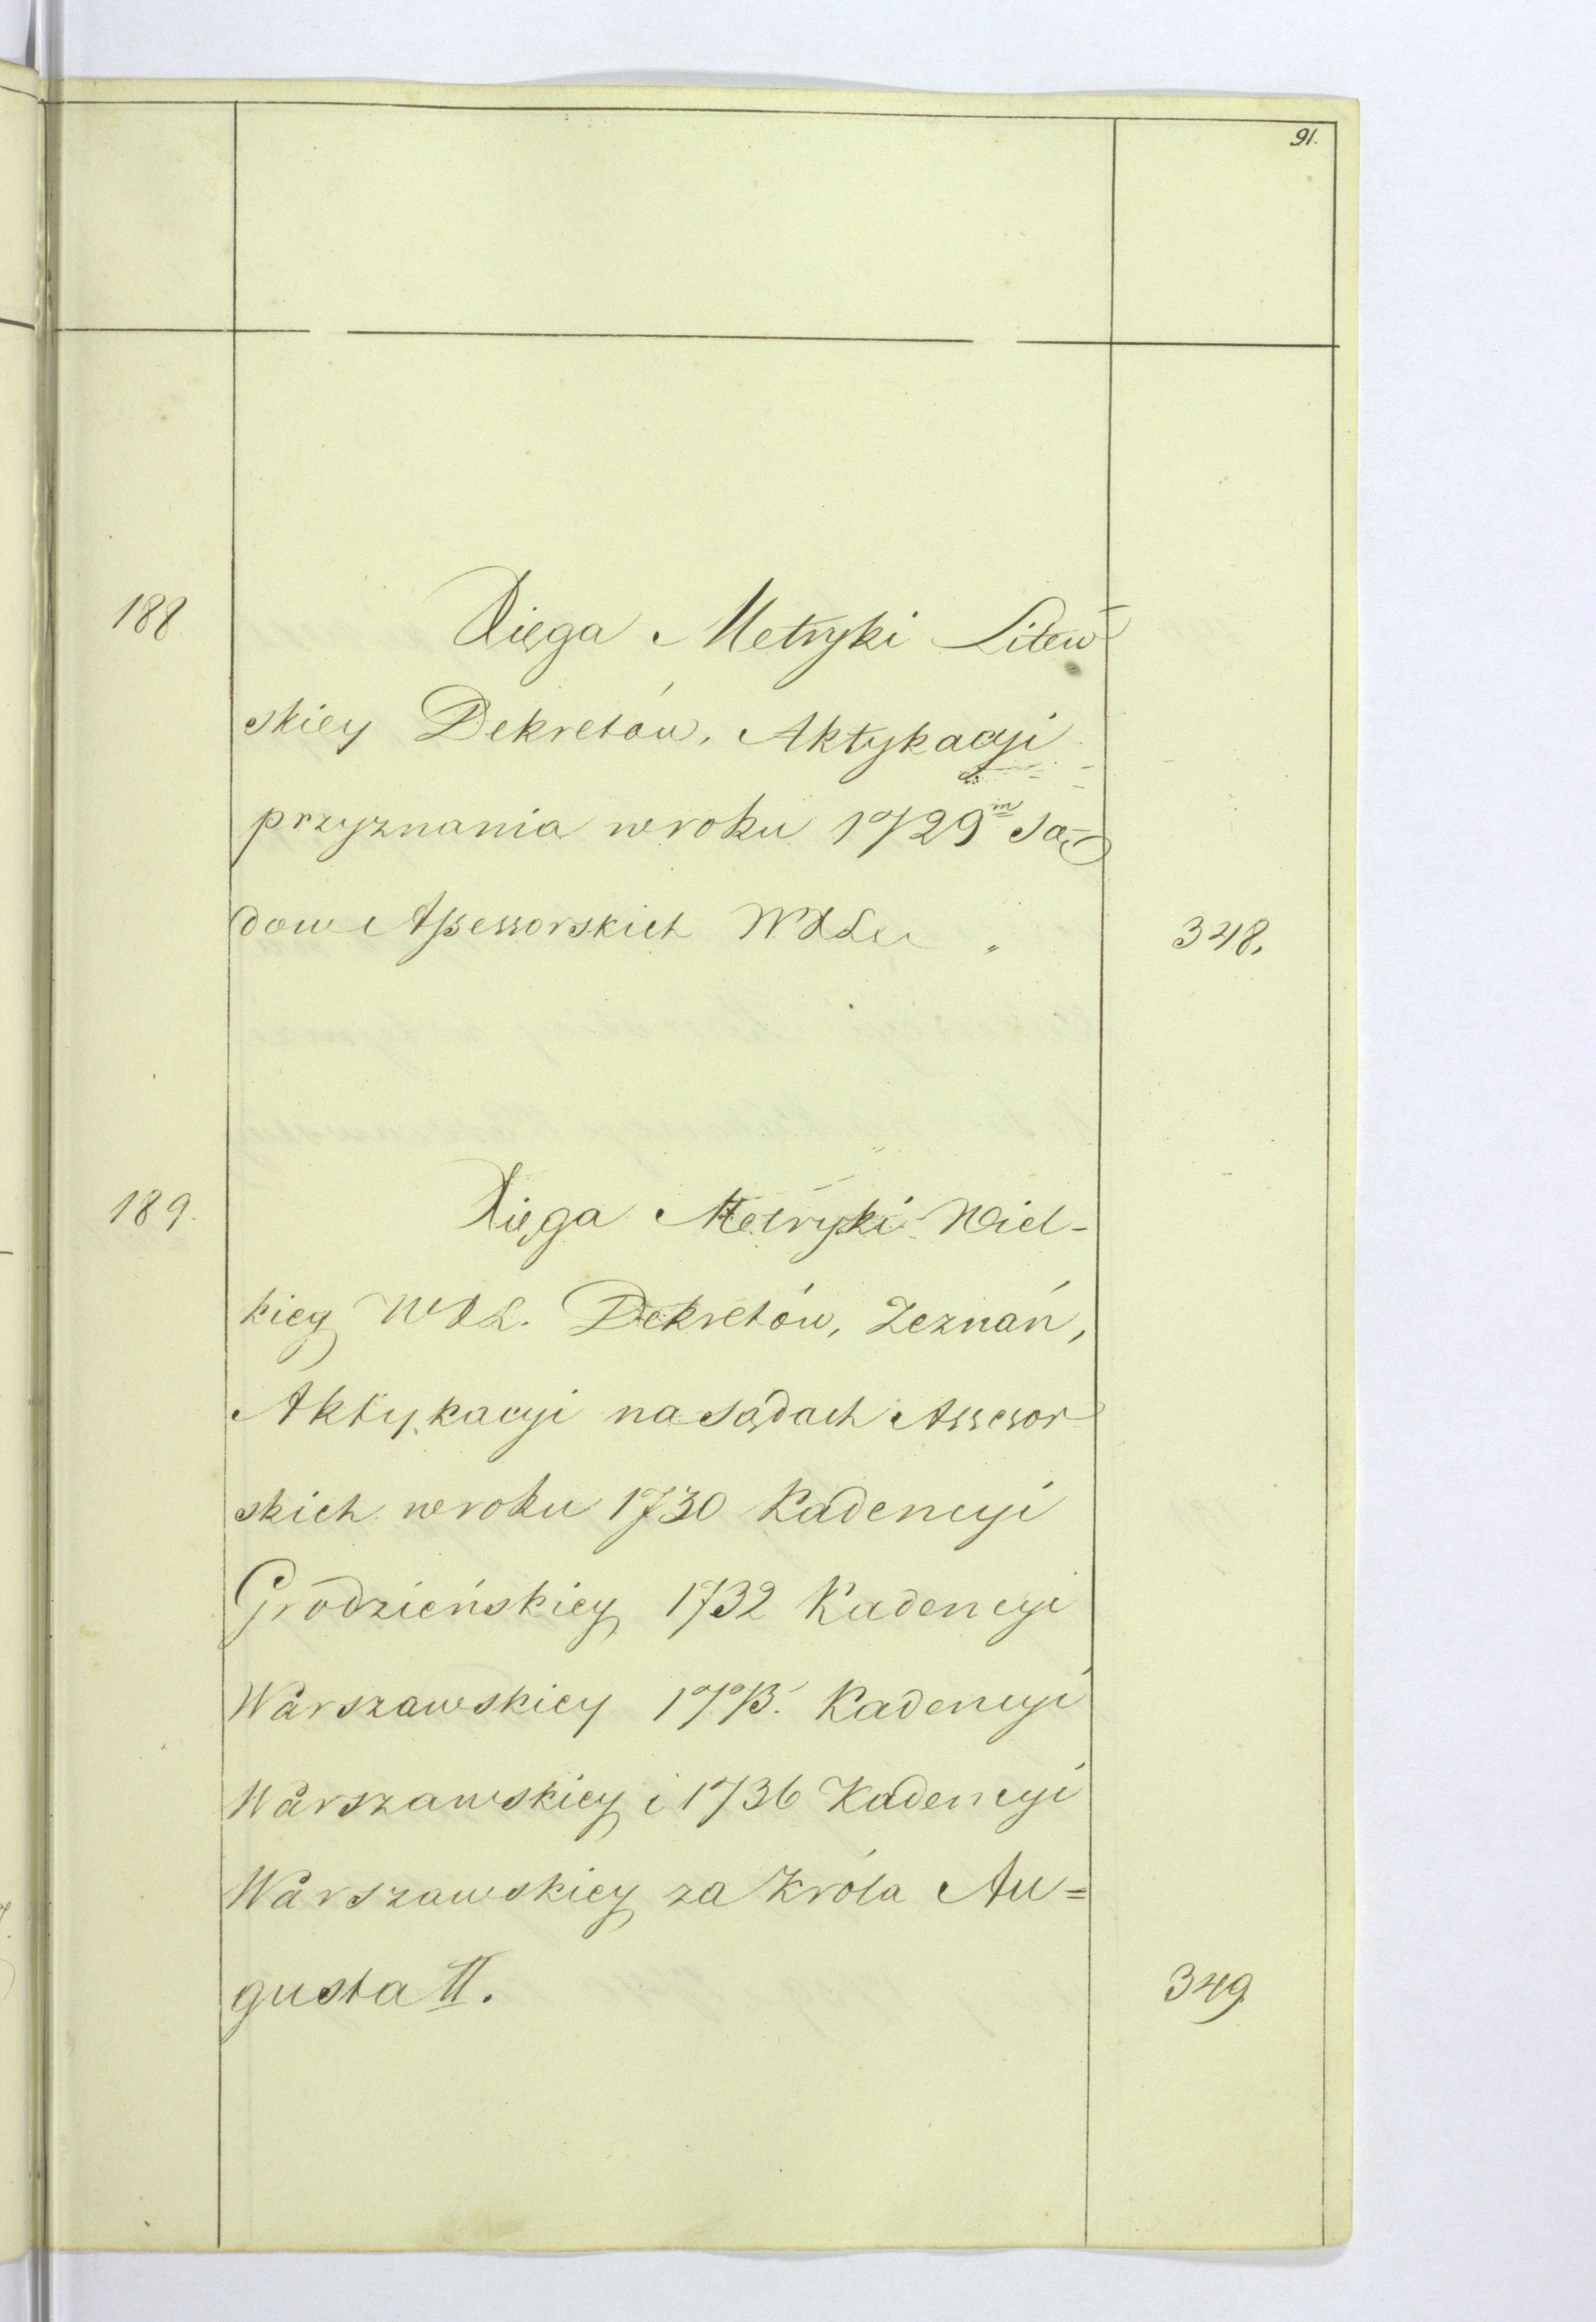 91.
188 Xięga Metryki Litew-
skiey Dekretów, Aktykacyi
przyznania w roku 1729m Są-
dow Assessorskich WXLu „ 348.
189. Xięga Metryki Wiel-
kiey WXL. Dekretów, Zeznań,
Aktykacyi na Sądach Assesor-
skich w roku 1730 Kadencyi
Grodzieńskiey 1732 Kadencyi
Warszawskiey Kadencyi
Warszawskiey i 1736 Kadencyi
Warszawskiey za Króla Au=
gusta II. 349